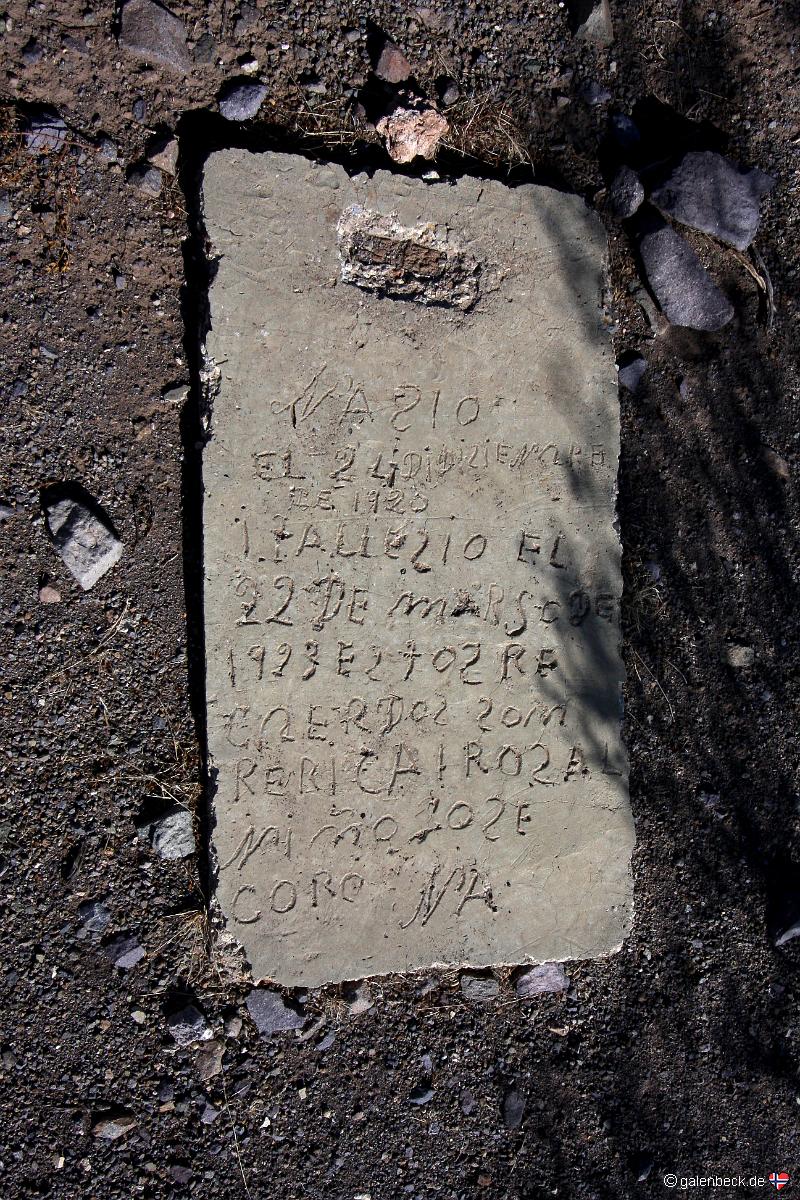 NASIO
EL 24 DI DIZIEMPRE
DE 1920
I FALLEZIO EL
22 DE MARSO DE
1923 ESTOS RE
CUERDOS SOM
RERICAIROS AL
NIÑO JOSE
CORONA
© galenbeck.de